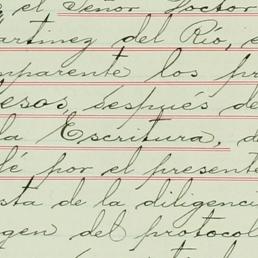 el Señor Doctor
artinez del Río, e
mparente los pr
esos, después de
la Escritura, d
lé por el presente
sta de la diligenci
gen del protocol